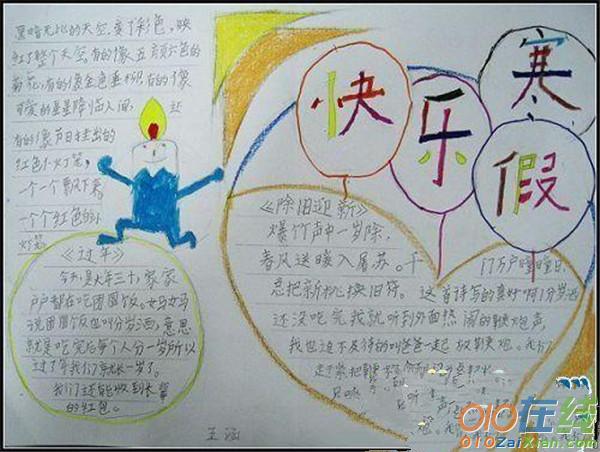 快乐寒假
黑暗无比的天空变了彩色,映
红了整个天空,有的像五颜六色的
菊花,有的像金色垂柳,有的像
可爱的星星降临人间,还
有的像节日挂出的
红色小灯笼,
一个一个飘下来
一个个红色的小
灯笼
《过年》
今天是大年三十,家家
户户都在吃团圆饭。妈妈
说团圆饭也叫分岁酒,意思
就是吃完后每个人分一岁所以
过了年我们年长一岁了。
我们还能收到长辈
的红包。
《除旧迎新》
爆竹声中一岁除,
春风送暖入屠苏。千
门万户曈曈日,
总把新桃换旧符。这首诗写的真好啊!
还没吃完我就听到外面热闹的鞭炮声,
我也迫不及待的叫爸爸一起放鞭炮。我们
王涵
010在线
010ZaiXian.com